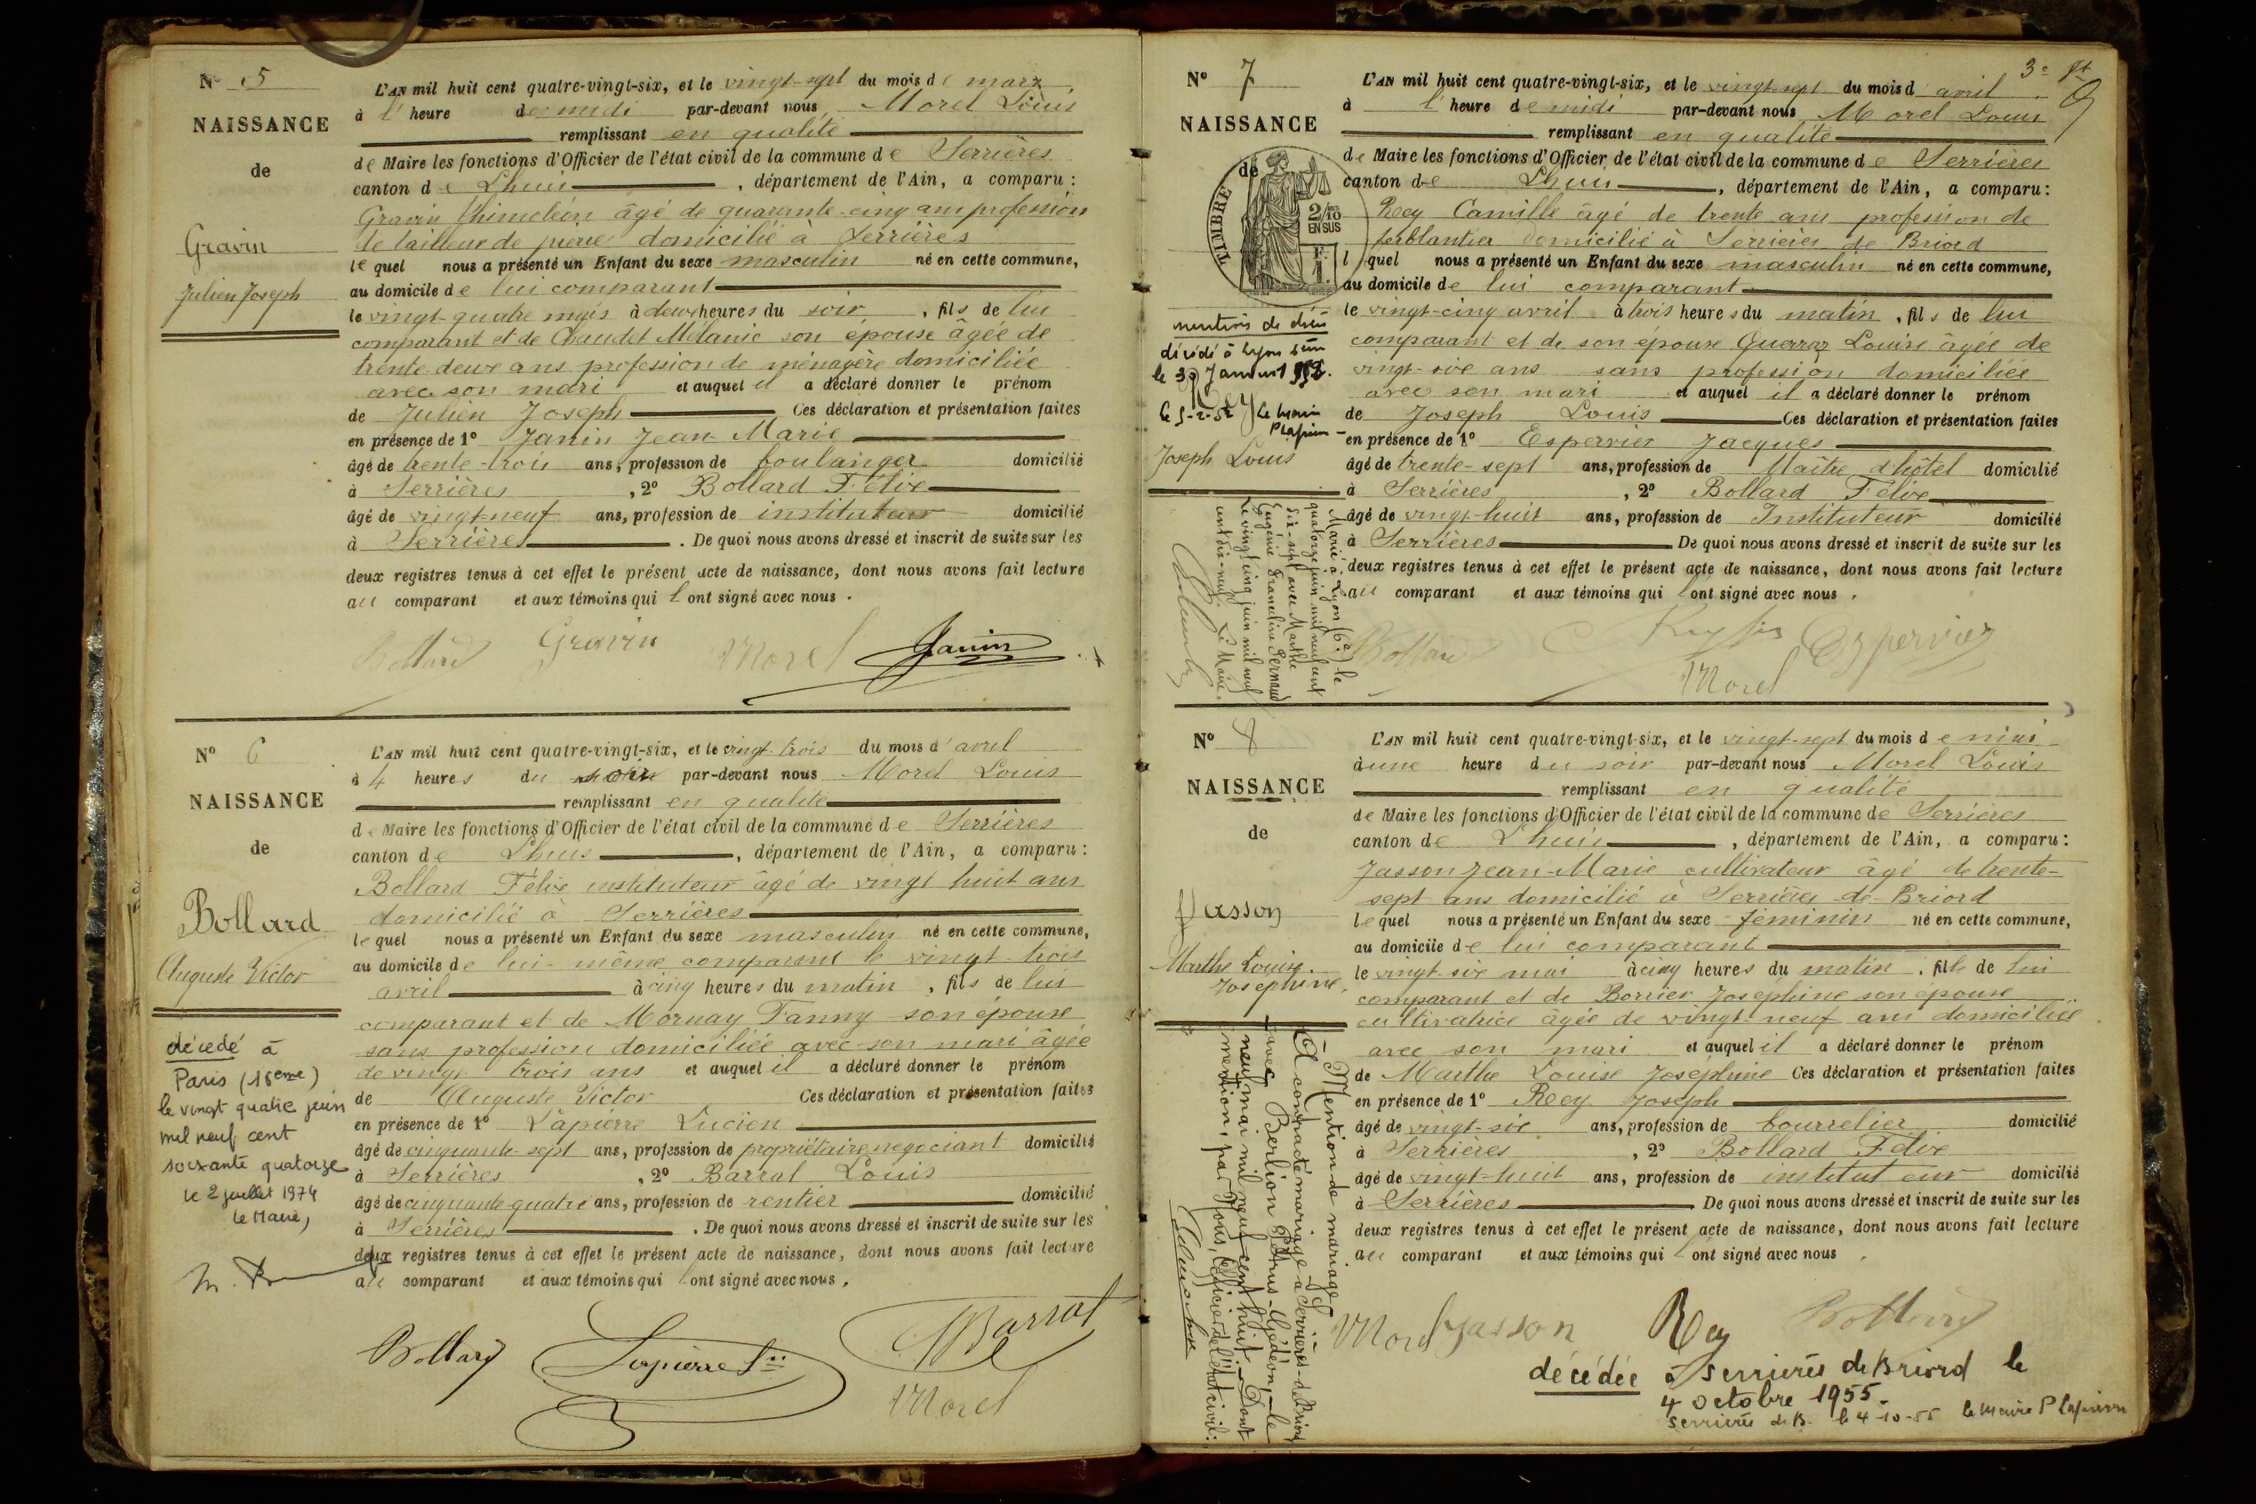 N° 5
NAISSANCE
de
Gravin
Julien Joseph
L'AN mil huit cent quatre-vingt-six, et le vingt-sept du mois de mars
à l'heure de midi par-devant nous Morel Louis
remplissant en qualité
de Maire les fonctions d'Officier de l'état civil de la commune de Serrières
canton de Lhuis, département de l'Ain, a comparu :
Gravin âgé de quarante-cinq ans profession
de tailleur de pierre domicilié à Serrières
lequel nous a présenté un Enfant du sexe masculin né en cette commune,
au domicile de lui comparant
le vingt-quatre mars à deux heures du soir, fils de lui
comparant et de Chaudet Mélanie son épouse âgée de
trente deux ans profession de ménagère domiciliée
avec son mari et auquel il a déclaré donner le prénom
de Julien Joseph Ces déclaration et présentation faites
en présence de 1° Janin Jean-Marie
âgé de trente-trois ans, profession de boulanger domicilié
à Serrières, 2° Bollard Félix
âgé de vingt-neuf ans, profession de instituteur domicilié
à Serrières. De quoi nous avons dressé et inscrit de suite sur les
deux registres tenus à cet effet le présent acte de naissance, dont nous avons fait lecture
au comparant et aux témoins qui l'ont signé avec nous.
Bollard Gravin Morel Janin
N° 6
NAISSANCE
de
Bollard
Auguste Victor
décédé à
Paris (18eme)
le vingt quatre juin
mil neuf cent
soixante quatorze
le 2 juillet 1974
le Maire,
L'AN mil huit cent quatre-vingt-six, et le vingt-trois du mois d'avril
à 4 heures du soir par-devant nous Morel Louis
remplissant en qualité
de Maire les fonctions d'Officier de l'état civil de la commune de Serrières
canton de Lhuis, département de l'Ain, a comparu :
Bollard Félix instituteur âgé de vingt huit ans
domicilié à Serrières
lequel nous a présenté un Enfant du sexe masculin né en cette commune,
au domicile de lui-même comparant le vingt-trois
avril à cinq heures du matin, fils de lui
comparant et de Mornay Fanny son épouse
sans profession domiciliée avec son mari âgée
de vingt trois ans et auquel il a déclaré donner le prénom
de Auguste Victor Ces déclaration et présentation faites
en présence de 1° Lapierre Lucien
âgé de cinquante-sept ans, profession de propriétaire negociant domicilié
à Serrières, 2° Barrat Louis
âgé de cinquante-quatre ans, profession de rentier domicilié
à Serrières. De quoi nous avons dressé et inscrit de suite sur les
deux registres tenus à cet effet le présent acte de naissance, dont nous avons fait lecture
au comparant et aux témoins qui l'ont signé avec nous.
Bollard Lapierre Barrat
Morel
3e
N° 7
NAISSANCE
de
TIMBRE
2/10
EN SUS
décédé à Lyon
Rey
le Maire
P Lapierre
Joseph Louis
Marié à Lyon (6e) le
quatorze juin mil neuf cent
dix-sept avec Marthe
Eugénie Franceline Pernaud
Le vingt cinq juin mil neuf
cent dix-neuf. Le Maire.
L'AN mil huit cent quatre-vingt-six, et le vingt-sept du mois d'avril
à l'heure de midi par-devant nous Morel Louis
remplissant en qualité
de Maire les fonctions d'Officier de l'état civil de la commune de Serrières
canton de Lhuis, département de l'Ain, a comparu :
Rey Camille âgé de trente ans profession de
ferblantier domicilié à Serrières de Briord
lequel nous a présenté un Enfant du sexe masculin né en cette commune,
au domicile de lui comparant
le vingt-cinq avril à trois heures du matin, fils de lui
comparant et de son épouse Guerraz Louise âgée de
vingt-six ans sans profession domiciliée
avec son mari et auquel il a déclaré donner le prénom
de Joseph Louis Ces déclaration et présentation faites
en présence de 1° Espervier Jacques
âgé de trente-sept ans, profession de Maître d'hôtel domicilié
à Serrières, 2° Bollard Félix
âgé de vingt-huit ans, profession de Instituteur domicilié
à Serrières De quoi nous avons dressé et inscrit de suite sur les
deux registres tenus à cet effet le présent acte de naissance, dont nous avons fait lecture
au comparant et aux témoins qui l'ont signé avec nous.
Bollard Rey Espervier
Morel
N° 8
NAISSANCE
de
Jasson
Marthe Louise
Joséphine
Mention de mariage
A contracté mariage à Serrières-de-Briord
avec Berlion Pétrus-Gédéon, le
neuf mai mil neuf cent huit. Dont
mention, par Nous, Officier de l'état civil:
L'AN mil huit cent quatre-vingt-six, et le vingt-sept du mois de mai
à une heure du soir par-devant nous Morel Louis
remplissant en qualité
de Maire les fonctions d'Officier de l'état civil de la commune de Serrières
canton de Lhuis, département de l'Ain, a comparu :
Jasson Jean-Marie cultivateur âgé de trente-
sept ans domicilié à Serrières de Briord
lequel nous a présenté un Enfant du sexe féminin né en cette commune,
au domicile de lui comparant
le vingt-six mai à cinq heures du matin, fille de lui
comparant et de Borrier Joséphine son épouse
cultivatrice âgée de vingt-neuf ans domiciliée
avec son mari et auquel il a déclaré donner le prénom
de Marthe Louise Joséphine Ces déclaration et présentation faites
en présence de 1° Rey Joseph
âgé de vingt-six ans, profession de bourrelier domicilié
à Serrières, 2° Bollard Félix
âgé de vingt-huit ans, profession de instituteur domicilié
à Serrières De quoi nous avons dressé et inscrit de suite sur les
deux registres tenus à cet effet le présent acte de naissance, dont nous avons fait lecture
au comparant et aux témoins qui l'ont signé avec nous.
Morel Jasson Rey Bollard
décédée à Serrières de Briord le
4 octobre 1955.
Serrières de B. le 4-10-55 le Maire P Lapierre